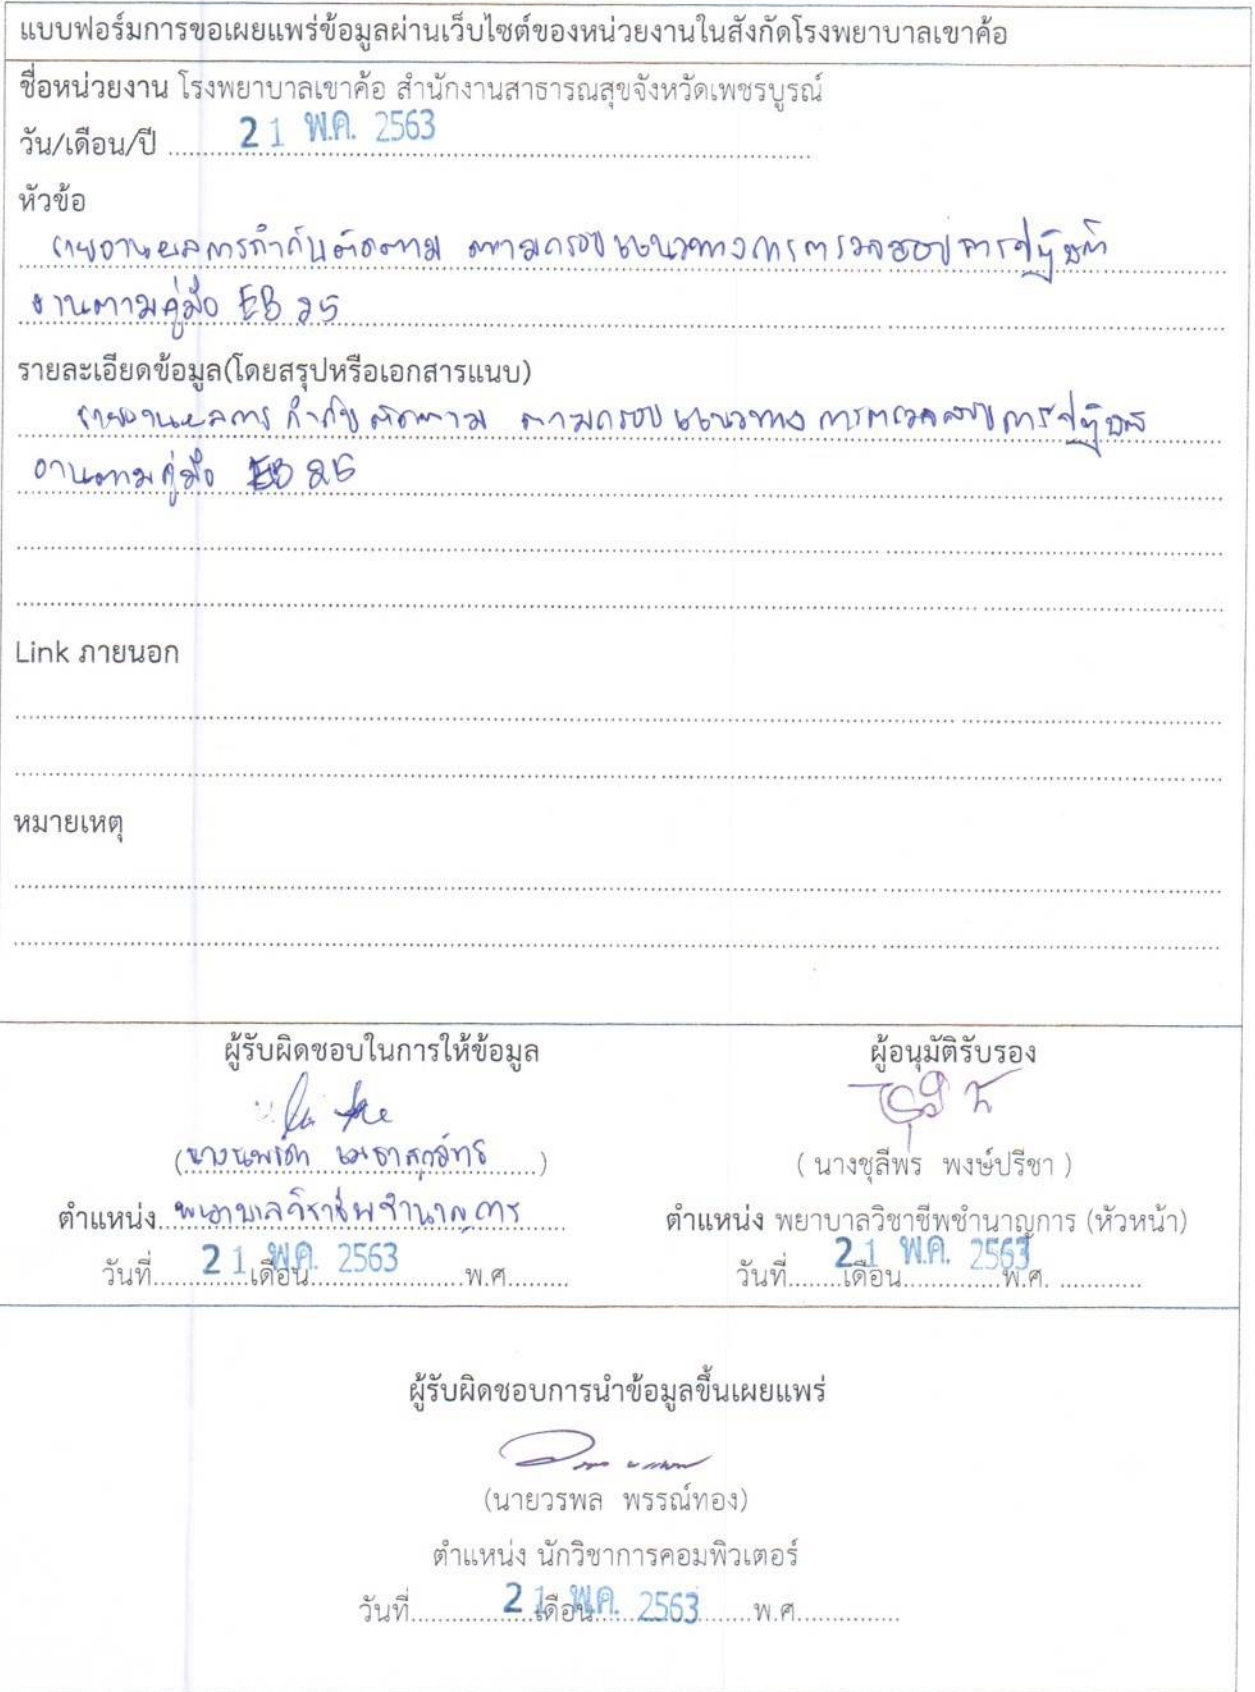 แบบฟอร์มการขอเผยแพร่ข้อมูลผ่านเว็บไซต์ของหน่วยงานในสังกัดโรงพยาบาลเขาค้อ
ชื่อหน่วยงาน โรงพยาบาลเขาค้อ สำนักงานสาธารณสุขจังหวัดเพชรบูรณ์
วัน/เดือน/ปี ........ 21 พ.ค. 2563 ........
หัวข้อ
รายงานผลการกำกับติดตาม ตามกรอบแนวทางการตรวจสอบการปฏิบัติ
งานตามคู่มือ EB 25
รายละเอียดข้อมูล(โดยสรุปหรือเอกสารแนบ)
รายงานผลการกำกับติดตาม ตามกรอบแนวทางการตรวจสอบการปฏิบัติ
งานตามคู่มือ EB 25
Link ภายนอก
หมายเหตุ
ผู้รับผิดชอบในการให้ข้อมูล ผู้อนุมัติรับรอง
(นาง ........) ( นางชุลีพร พงษ์ปรีชา )
ตำแหน่ง พยาบาลวิชาชีพชำนาญการ ตำแหน่ง พยาบาลวิชาชีพชำนาญการ (หัวหน้า)
วันที่ 21 เดือน พ.ค. 2563 พ.ศ......... วันที่ 21 เดือน พ.ค. 2563 พ.ศ. ............
ผู้รับผิดชอบการนำข้อมูลขึ้นเผยแพร่
(นายวรพล พรรณ์ทอง)
ตำแหน่ง นักวิชาการคอมพิวเตอร์
วันที่ 21 เดือน พ.ค. 2563 พ.ศ...............